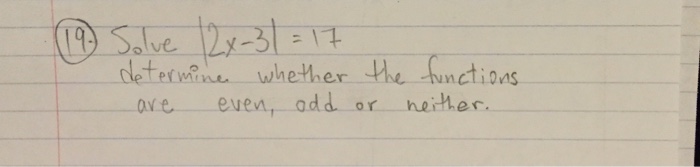 19. Solve |2x-3| = 17
determine whether the functions
are even, odd or neither.